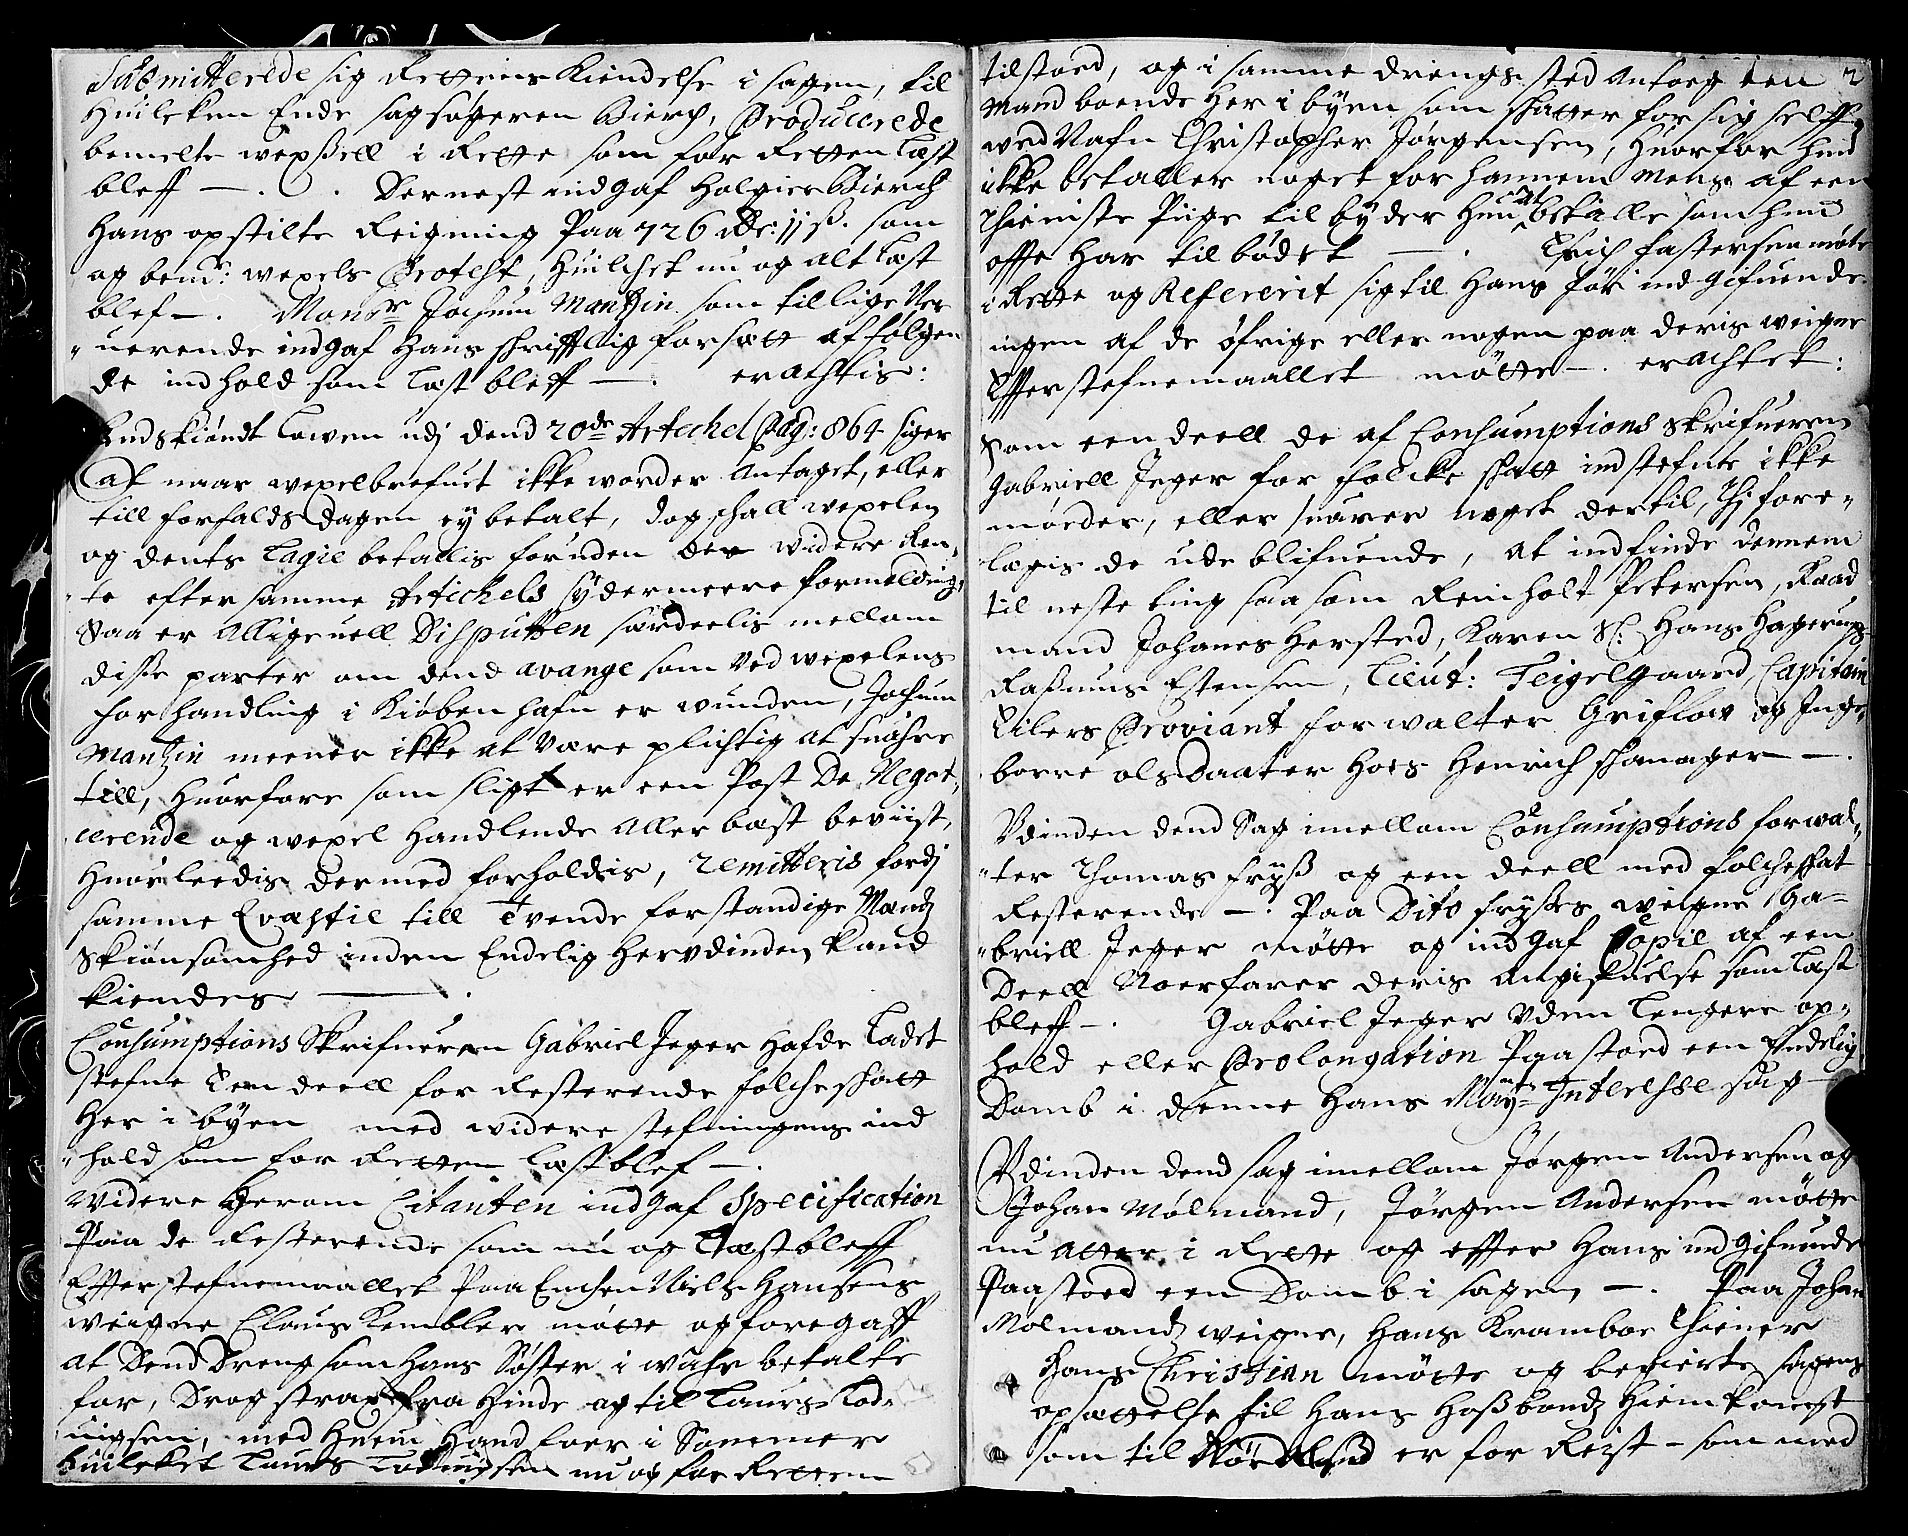 Submitterede sig Rettens Kiendelse i sagen, til
Huilcken Ende sagsøgeren Bierch, Producerede
bemelte wexßell i Rette som for Retten læst
bleff —. Dernest indgaf Holgier Bierch
Hans opstilte Reigning Paa 726 Rdr: jj ß. som
og bemte: wexels Protest, Huilchet nu og alt læst
blef —. Monsr Jochum Mantzin som tillige Ner
uerende indgaf Hans schrifftlig forsætt af følgen
de indhold som læst bleff —. erachtis:
Endskiøndt Lowen udj dend 20de Artechel Pag: 864 siger
at naar wexelbrefuet ikke worder Antaget, eller
till forfalds dagen ey betalt, dog schall wexelen
og dents Lagie betallis foruden den widere Ren,
te efter samme Artichels ydermeere formelding,
Saa er Alligeuell Disputten særdeelis mellom
disse parter om dend avange som ved wexelens
forhandling i Kiøbenhafn er wunden, Jochum
Mantzin meener ikke at være plichtig at suahre
till, Huorfore som sligt er een Post De Negot,
ierende og wexel Handlende Aller bæst beviist,
Huorleedis dermed forholdis, remitteris fordj
samme Qvæstie till Tvende forstandige Mændz
Skiønsomhed inden Endelig Hervdinden kand
kiendes —.
Consumptions Skrifueren Gabriel Jeger Hafde Ladet
stefne Een deell for Resterende folcheschatt
Her i byen med widere stefningens ind
hold som for Retten læst blef —.
Widere Herom Citanten indgaf Specification
Paa de Resterende som nu og læst bleff
Efter stefnemaallet Paa Enchen Niels Hansens
weigne Claus Kembler møtte og foregaff
at Dend Dreng som Hans Søster i wahr betalte
for, Drog strax fra Hinde og til Laurs Lod,
uigsen, med Huem Hand foer i Sommer
Huilcket Laurs Loduigsen nu og for Retten
tilstoed, og i samme drengs sted Antog een 2
Mand boende Her i byen som schatter for sig selff
ved Nafn Christopher Jørgensen, Huorfor Hun
ikke betaller noget for hannem Mens af een
thieniste Piige til byder Hun at betalle som hun
offte Har tilbødet —. Erich Fastersen møtte
i Rette og Refererit sig til Hans før indgifuende
ingen af de øfrige eller nogen paa deris weigne
Effter stefnemaallet møtte —. erachtet:
Som een deell de af Consumptions Skrifueren
Gabriell Jeger for folcke schatt indstefnte ikke
møeder, eller suarer noget dertil, Thj fore„
legis de ude blifuende, at indfinde dennem
til neste ting saa som Reinholt Petersen, Raad
mand Johanes Hersted, Karen Sl: Hans Hagerups
Rasmus Estensen, Lieut: Teigelgaard, Capitain
Eilers Proviant forwalter Griflow og Inge,
borre olsdaater Hoes Henrich schamager —.
Vdinden dend Sag imellom Consumptions forwal„
„ter Thomas fryß og een deell med folcheschat
Resterende —. Paa Dito fryßes weigne Ga=
„briell Jeger møtte og indgaf Copie af een
Deell Noerfarer deris Angifuelse som læst
bleff —. Gabriel Jeger vden lengere op„
hold eller Prolongation Paastoed een Endelig
Domb i denne Hans Mayts Interesse sag —
Vdinden dend sag imellom Jørgen Andersen og
Johan Mølmand, Jørgen Andersen møtte
nu atter i Rette og effter Hans indgifuende
Paastoed een Domb i sagen —. Paa Johan
Mølmandz weigne, Hans Krамboe thiener
Hans Christian møtte og begierte sagens
opsættelse til Hans Hoßbondz Hiemkomst
som til Nordland er for Reist — som med